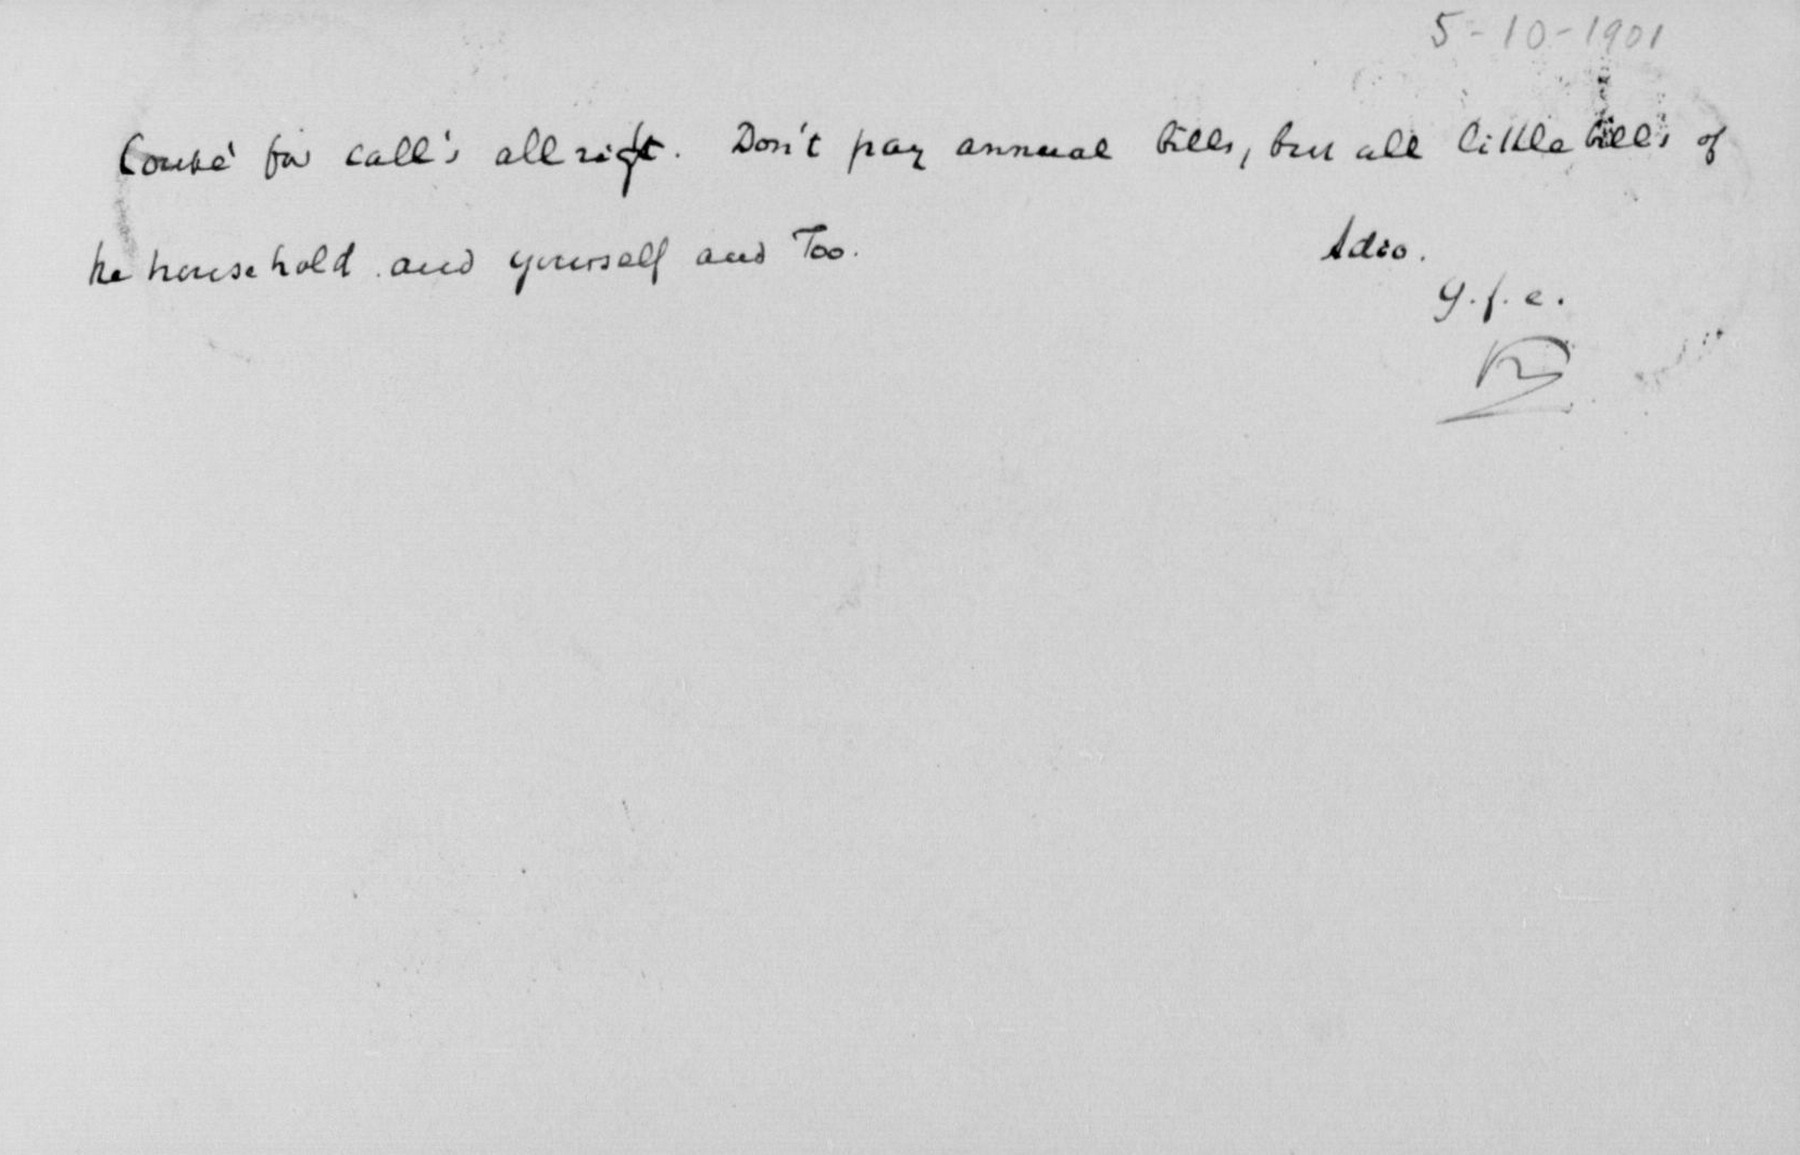 5-10-1901
Coupé for call's all right. Don't pay annual bills, but all little bills of
the household and yourself and Too.
Adio.
y.f.e.